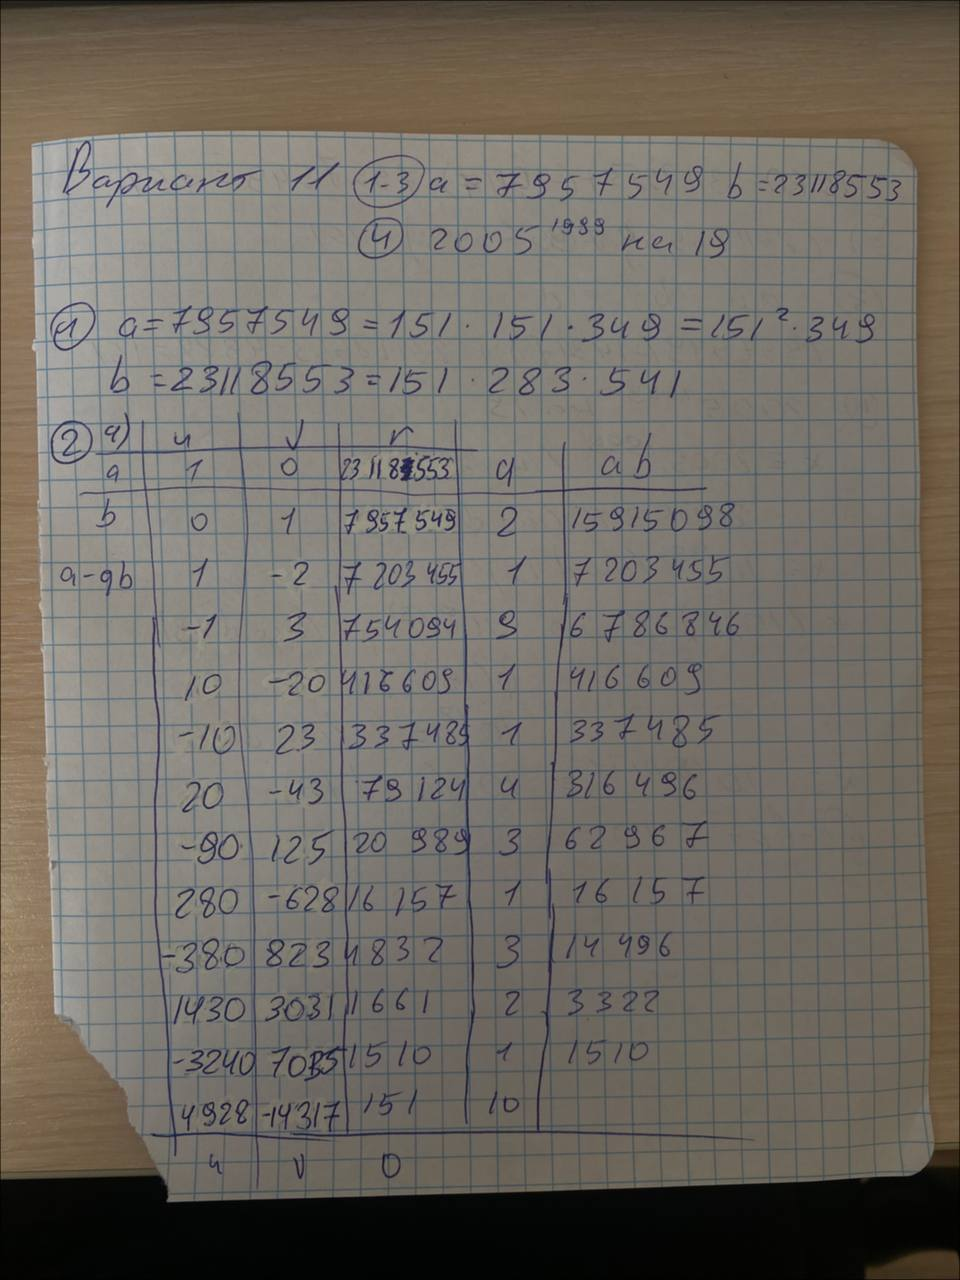 Вариант 11 (1-3) a = 7957549 b = 23118553
(4) 2005^1999 на 19
(1) a = 7957549 = 151 · 151 · 349 = 151² · 349
b = 23118553 = 151 · 283 · 541
(2) a) u v r
a 1 0 23118553 q ab
b 0 1 7957549 2 15915098
a-qb 1 -2 7203455 1 7203455
-1 3 754094 9 6786846
10 -20 416609 1 416609
-10 23 337485 1 337485
20 -43 79124 4 316496
-90 125 20989 3 62967
280 -628 16157 1 16157
-380 823 4832 3 14496
1430 3031 1661 2 3322
-3240 7035 1510 1 1510
4928 -14317 151 10
u v 0